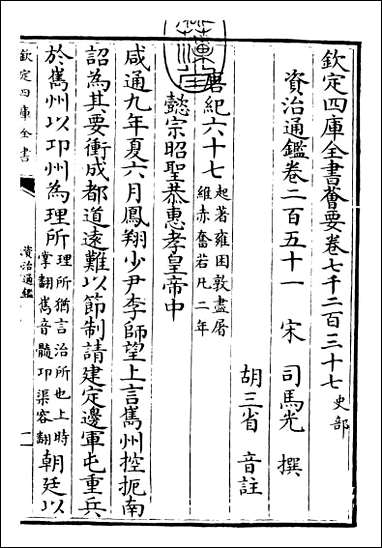 欽定四庫全書薈要卷七千二百三十七 史部
資治通鑑卷二百五十一
宋 司馬光 撰
胡三省 音註
唐紀六十七 起著雍困敦盡屠維赤奮若凡二年
懿宗昭聖恭惠孝皇帝中
咸通九年夏六月鳳翔少尹李師望上言巂州控扼南
詔為其要衝成都道遠難以節制請建定邊軍屯重兵
於巂州以邛州為理所 理所猶言治所也上時掌翻巂音髓邛渠容翻 朝廷以
欽定四庫全書
資治通鑑
一